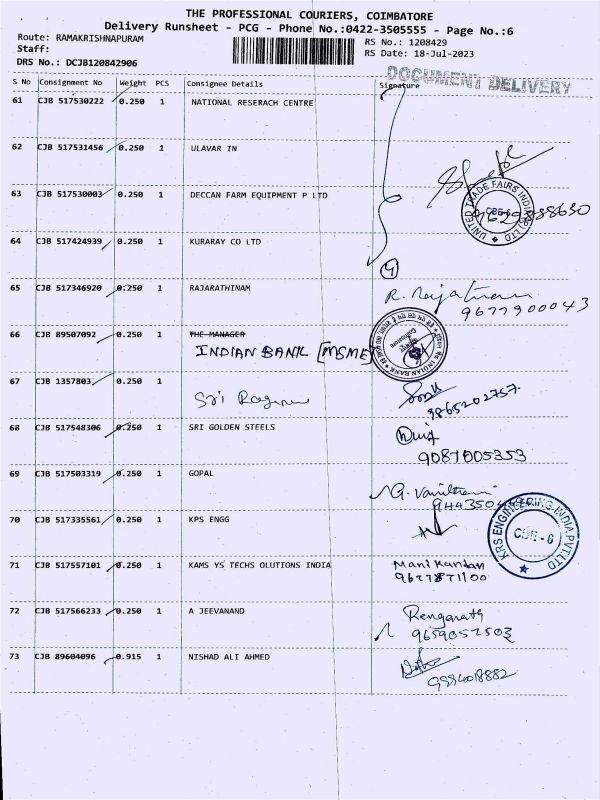 THE PROFESSIONAL COURIERS, COIMBATORE
Delivery Runsheet - PCG - Phone No.:0422-3505555 - Page No.:6
Route: RAMAKRISHNAPURAM
RS No.: 1208429
Staff:
RS Date: 18-Jul-2023
DRS No.: DCJB120842906
DOCUMENT DELIVERY
S No Consignment No Weight PCS Consignee Details Signature
61 CJB 517530222 0.250 1 NATIONAL RESERACH CENTRE
62 CJB 517531456 0.250 1 ULAVAR IN
63 CJB 517530003 0.250 1 DECCAN FARM EQUIPMENT P LTD
UNITED TRADE FAIRS INDIA (P) LTD
CBE-6
64 CJB 517424939 0.250 1 KURARAY CO LTD
4
65 CJB 517346920 0.250 1 RAJARATHINAM
R. Rajatnam
9677900043
66 CJB 89507092 0.250 1 THE MANAGER
INDIAN BANK [MSME]
INDIAN BANK
67 CJB 1357803 0.250 1
Sri
9865202757
68 CJB 517548306 0.250 1 SRI GOLDEN STEELS
9087005353
69 CJB 517503319 0.250 1 GOPAL
G. Vanithani
70 CJB 517335561 0.250 1 KPS ENGG
KRS ENGINEERING INDIA PVT LTD
CBE - 6
71 CJB 517557101 0.250 1 KAMS YS TECHS OLUTIONS INDIA
Manikandan
9677871100
72 CJB 517566233 0.250 1 A JEEVANAND
Rengarath
9659057503
73 CJB 89604096 0.915 1 NISHAD ALI AHMED
9994018882